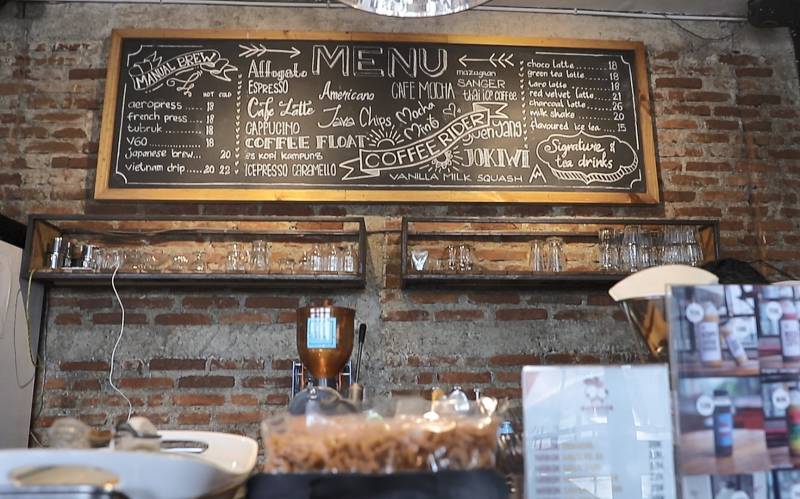 MANUAL BREW
HOT COLD
aeropress .... 18
french press ..... 18
tubruk ..... 18
V60 ............ 18
japanese brew... 20
vietnam drip ..... 20 22
MENU
Affogato
ESPRESSO
Cafe Latte
CAPPUCINO
COFFEE FLOAT
es kopi kampung
ICEPRESSO CARAMELLO
Americano
CAFE MOCHA
Java Chips
Mocha
Mint
COFFEE RIDER
VANILLA MILK SQUASH
mazagran
SANGER
thai ice coffee
yuenyang
JOKIWI
choco latte ........ 18
green tea latte ..... 18
taro latte ........ 18
red velvet latte ... 21
charcoal latte ..... 26
milk shake ........ 20
flavoured ice tea ... 15
Signature &
tea drinks